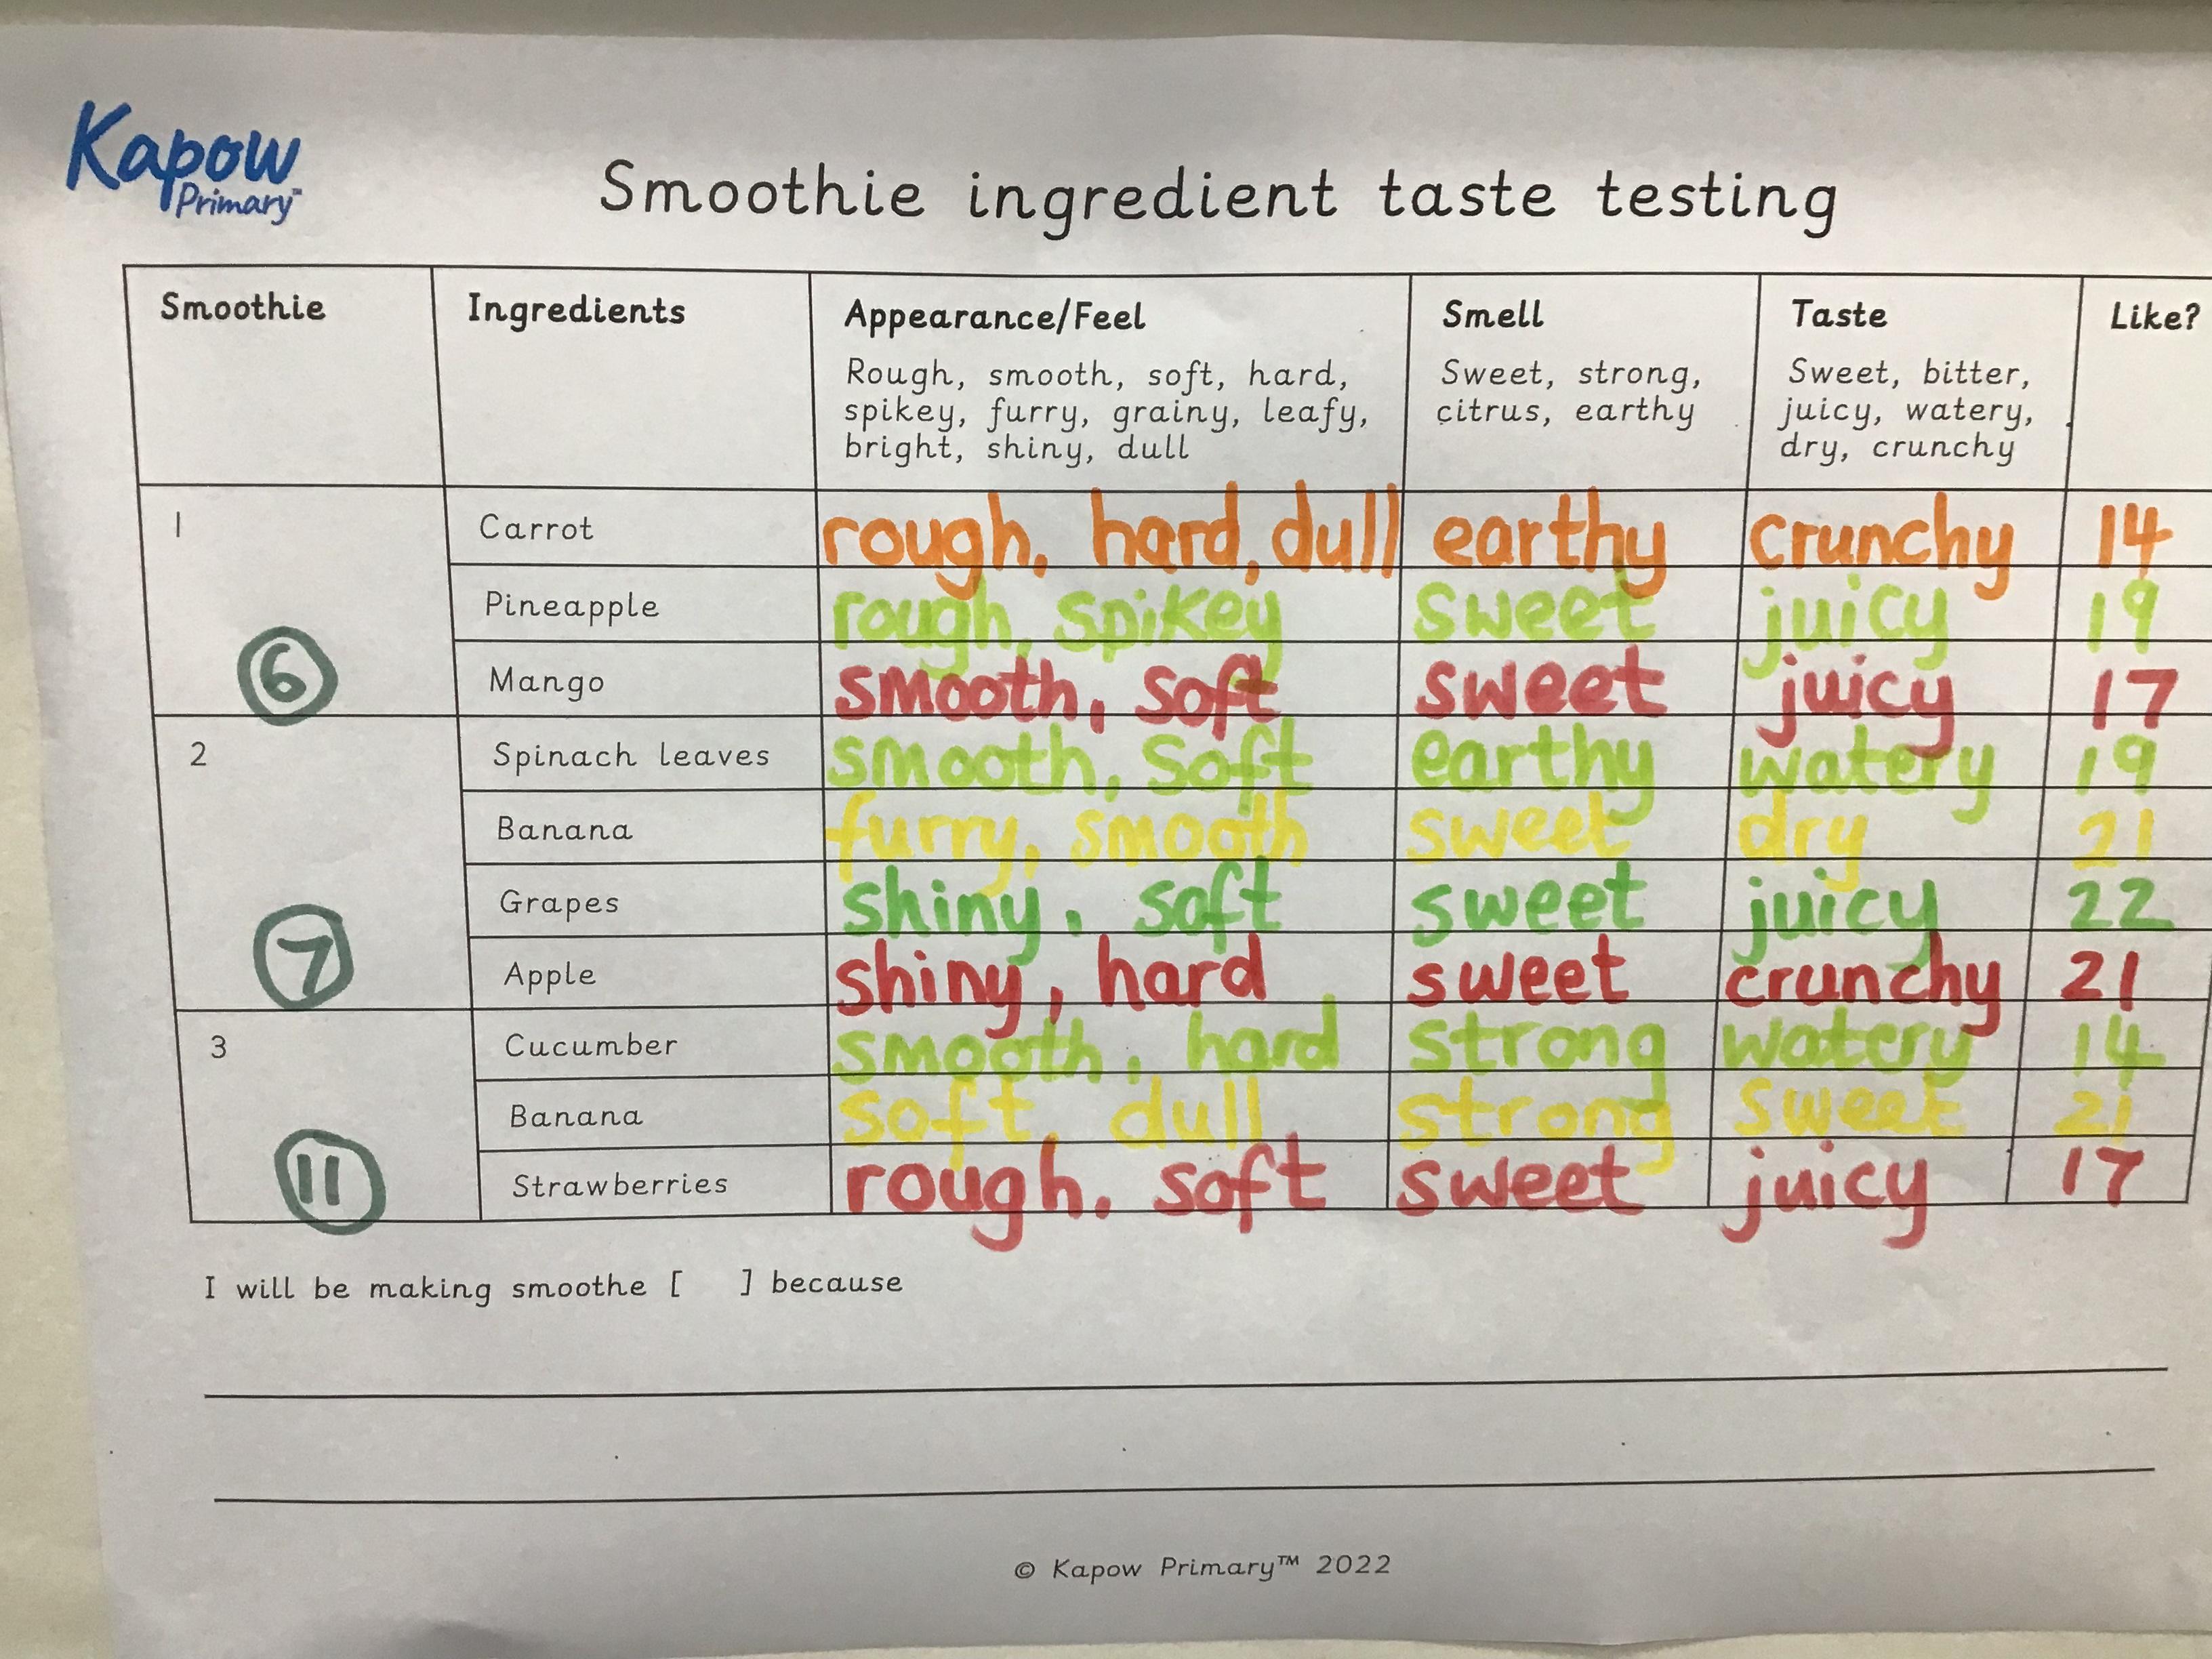 Kapow
Primary™
Smoothie ingredient taste testing
Smoothie Ingredients Appearance/Feel Smell Taste Like?
Rough, smooth, soft, hard, Sweet, strong, Sweet, bitter,
spikey, furry, grainy, leafy, citrus, earthy juicy, watery,
bright, shiny, dull dry, crunchy
1 Carrot rough, hard, dull earthy crunchy 14
Pineapple rough, spikey sweet juicy 19
6 Mango smooth, soft sweet juicy 17
2 Spinach leaves smooth, soft earthy watery 19
Banana furry, smooth sweet dry 21
Grapes shiny, soft sweet juicy 22
7 Apple shiny, hard sweet crunchy 21
3 Cucumber smooth, hard strong watery 14
Banana soft, dull strong sweet 21
11 Strawberries rough, soft sweet juicy 17
I will be making smoothe [ ] because
© Kapow Primary™ 2022